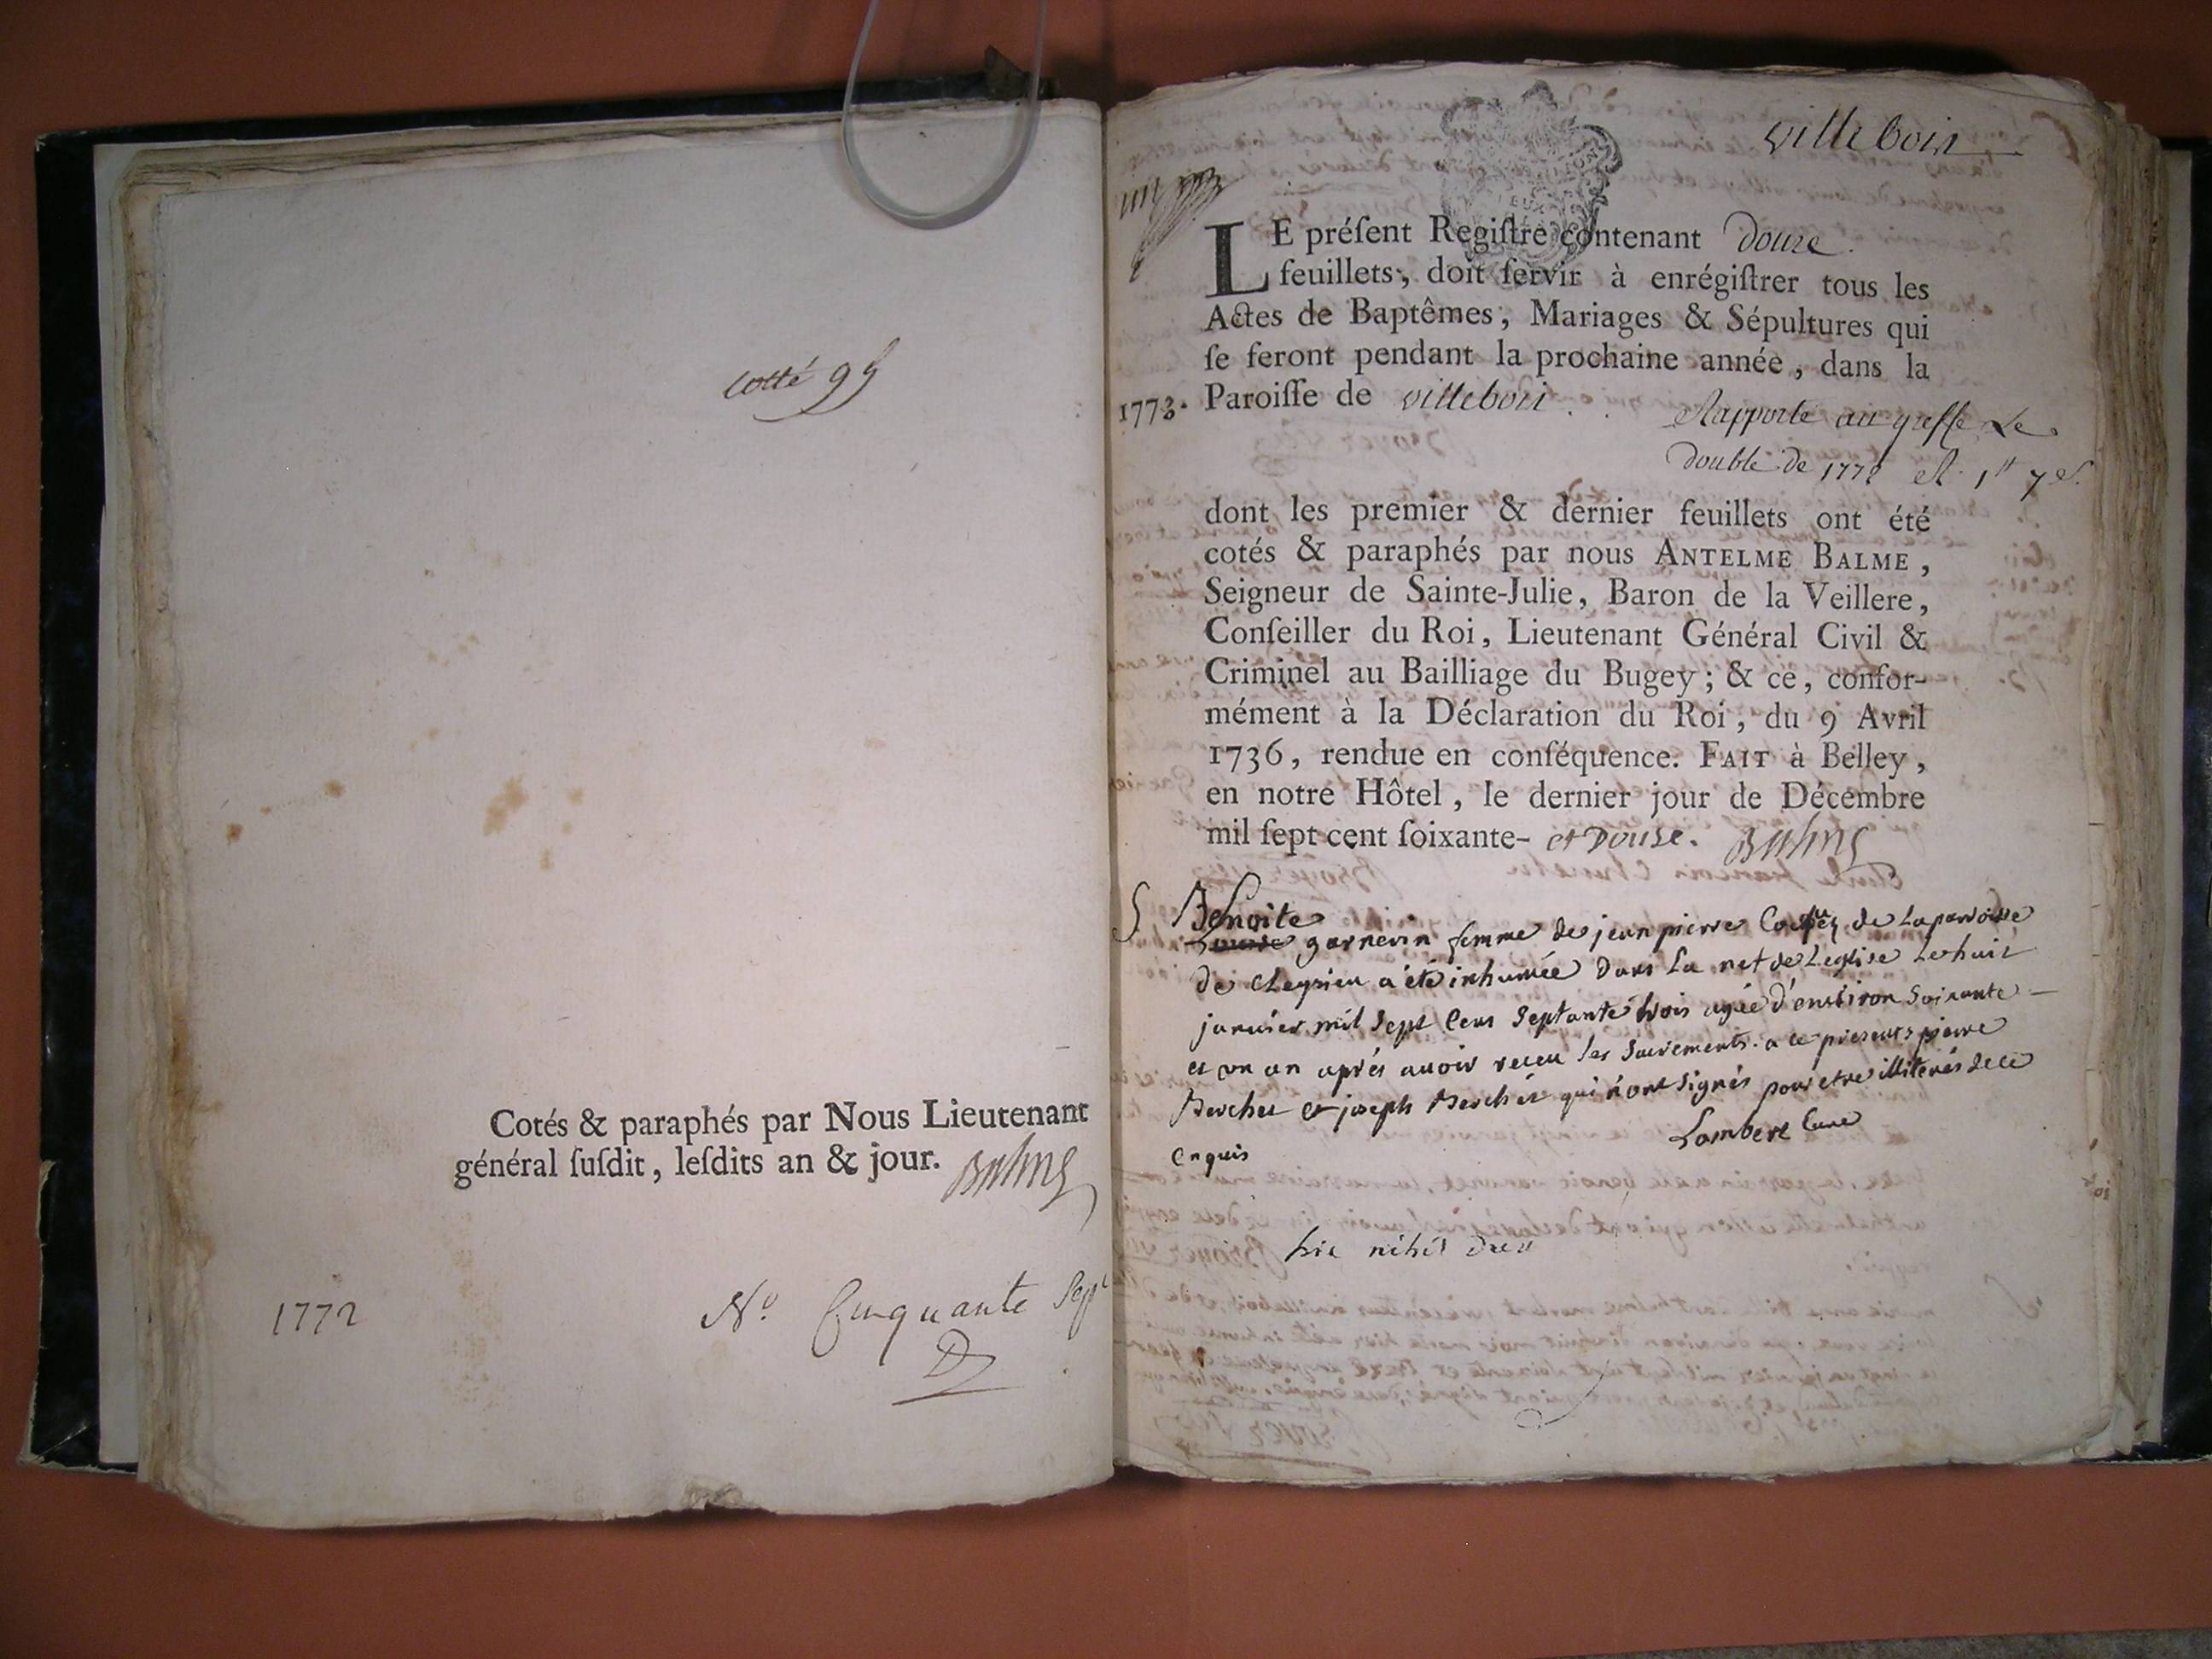 cotté 99
Cotés & paraphés par Nous Lieutenant
général ſuſdit, leſdits an & jour. Balme
1772
N.º Cinquante Sept
villebois
LE préſent Regiſtre contenant douze
feuillets, doit ſervir à enrégiſtrer tous les
Actes de Baptêmes, Mariages & Sépultures qui
ſe feront pendant la prochaine année, dans la
1773. Paroiſſe de villeboi
Rapporté au greffe Le
double de 1772 et
dont les premier & dernier feuillets ont été
cotés & paraphés par nous ANTELME BALME,
Seigneur de Sainte-Julie, Baron de la Veillere,
Conſeiller du Roi, Lieutenant Général Civil &
Criminel au Bailliage du Bugey; & ce, confor-
mément à la Déclaration du Roi, du 9 Avril
1736, rendue en conſéquence. FAIT à Belley,
en notre Hôtel, le dernier jour de Décembre
mil ſept cent ſoixante- et Douse. Balme
S Benoite
garnerin femme de jean pierre de La parroisse
de cleyrieu a été inhumée dans La nef de L'eglise Le huit
janvier mil Sept Cens Septante trois agée d'environ Soixante
et un an aprés avoir receu les Sacrements. a ce presents pierre
Berchet et joseph Berchét qui n'ont Signés pour etre illiterés de ce
enquis
Lambert Curé
hic nihil